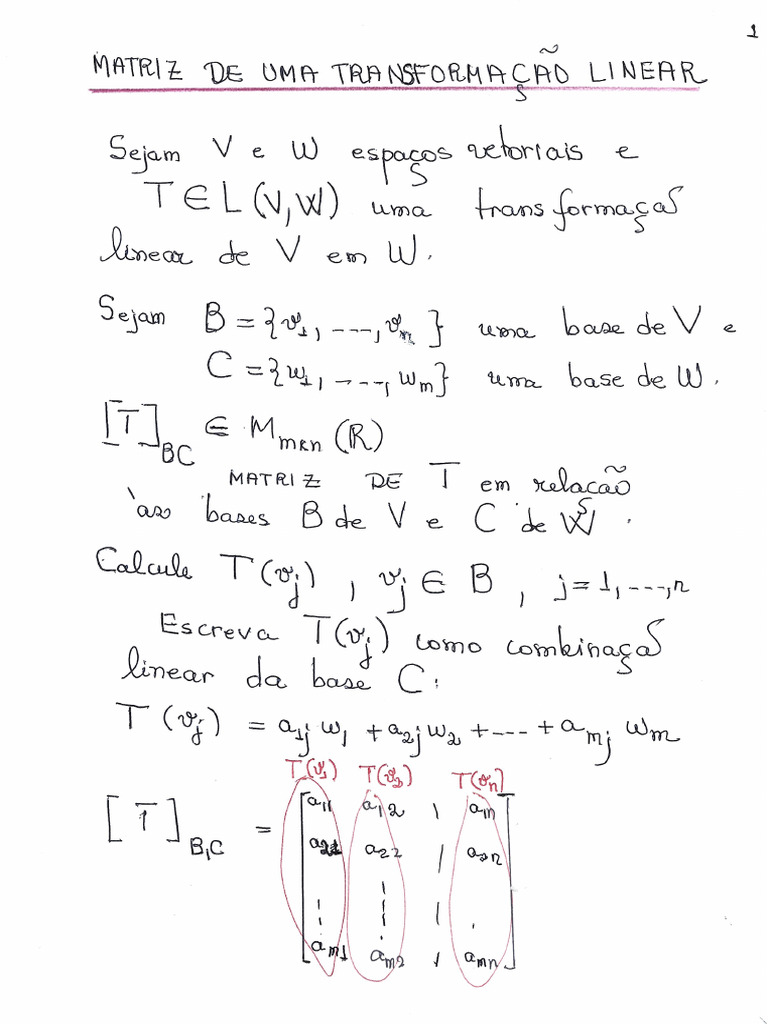 1
MATRIZ DE UMA TRANSFORMAÇÃO LINEAR
Sejam V e W espaços vetoriais e
T ∈ L(V,W) uma transformação
linear de V em W.
Sejam B = {v₁, ---, vₙ} uma base de V e
C = {w₁, ---, wₘ} uma base de W.
[T]BC ∈ Mmxn (R)
MATRIZ DE T em relação
às bases B de V e C de W.
Calcule T(vj) , vj ∈ B , j = 1, ---, n
Escreva T(vj) como combinação
linear da base C:
T(vj) = a1j w1 + a2j w2 + --- + amj wm
T(v1) T(v2) T(vn)
[T]B,C = [ a11 a12 , a1n
a21 a22 , a2n
⋮ ⋮ , .
am1 am2 , amn ]